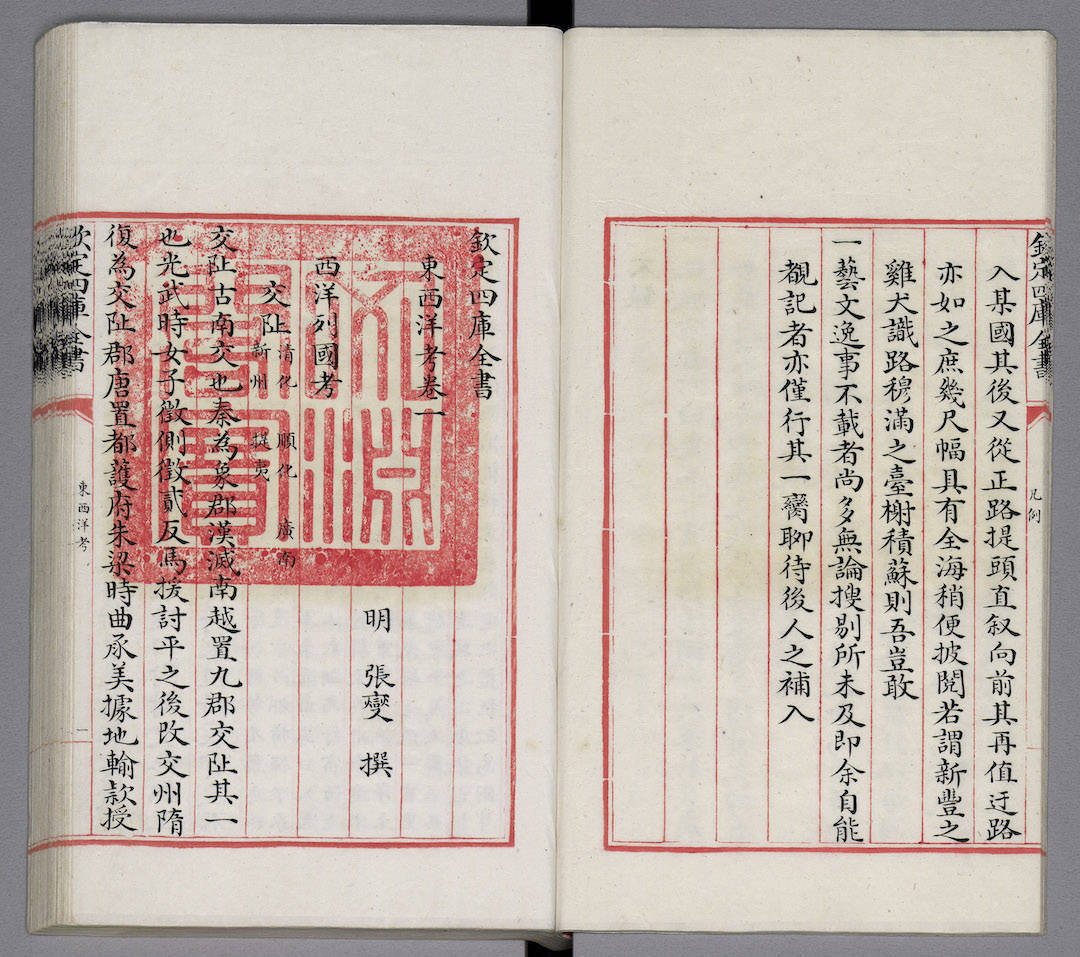 欽定四庫全書
凡例
入某國其後又從正路提頭直叙向前其再值迂路
亦如之庶幾尺幅具有全海稍便披閱若謂新豐之
雞犬識路穆滿之臺榭積蘇則吾豈敢
一藝文逸事不載者尚多無論搜剔所未及即余自能
覩記者亦僅行其一臠聊待後人之補入
欽定四庫全書
東西洋考卷一
明 張燮 撰
西洋列國考
交阯 清化 順化 廣南
新州 提夷
交阯古南交也秦為象郡漢滅南越置九郡交阯其一
也光武時女子徵側徵貳反馬援討平之後改交州隋
復為交阯郡唐置都護府朱梁時曲承美據地輸款授
欽定四庫全書
東西洋考
一
文淵閣寶